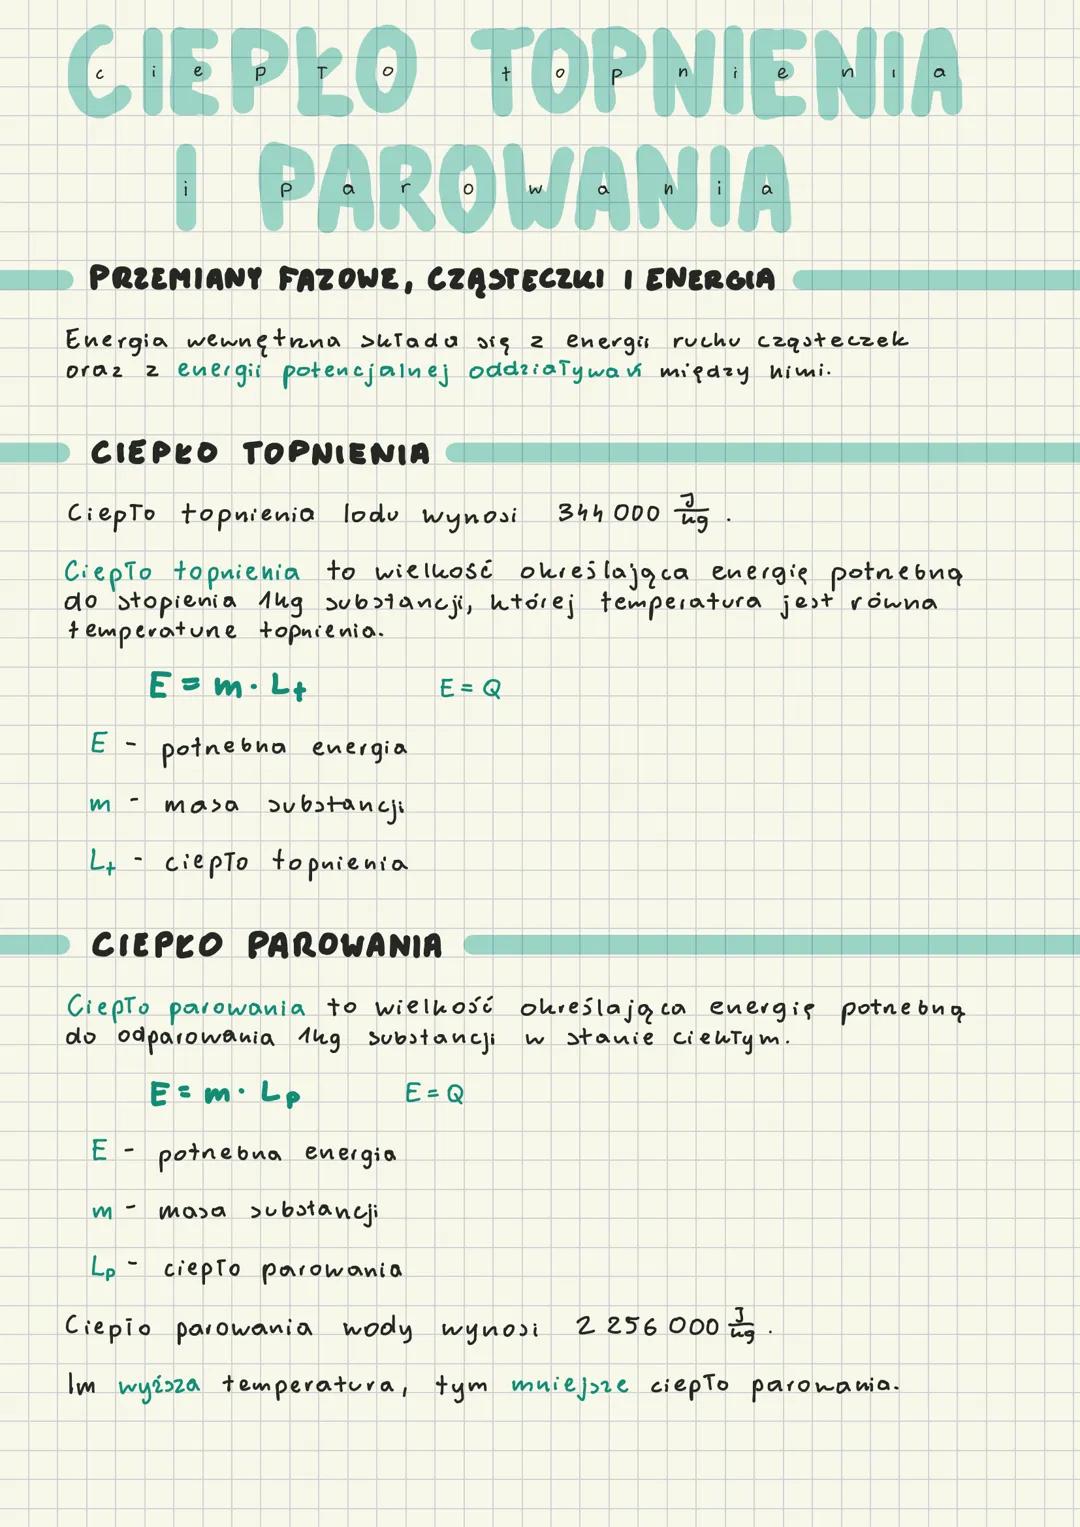 CIEPŁO TOPNIENIA
ciepło topnienia
I PAROWANIA
i parowania
PRZEMIANY FAZOWE, CZĄSTECZKI I ENERGIA
Energia wewnętrzna składa się z energii ruchu cząsteczek
oraz z energii potencjalnej oddziaływań między nimi.
CIEPŁO TOPNIENIA
Ciepło topnienia lodu wynosi 344 000 J/kg.
Ciepło topnienia to wielkość określająca energię potrzebną
do stopienia 1kg substancji, której temperatura jest równa
temperaturze topnienia.
E = m · Lt E = Q
E - potrzebna energia
m - masa substancji
Lt - ciepło topnienia
CIEPŁO PAROWANIA
Ciepło parowania to wielkość określająca energię potrzebną
do odparowania 1kg substancji w stanie ciekłym.
E = m · Lp E = Q
E - potrzebna energia
m - masa substancji
Lp - ciepło parowania
Ciepło parowania wody wynosi 2 256 000 J/kg.
Im wyższa temperatura, tym mniejsze ciepło parowania.